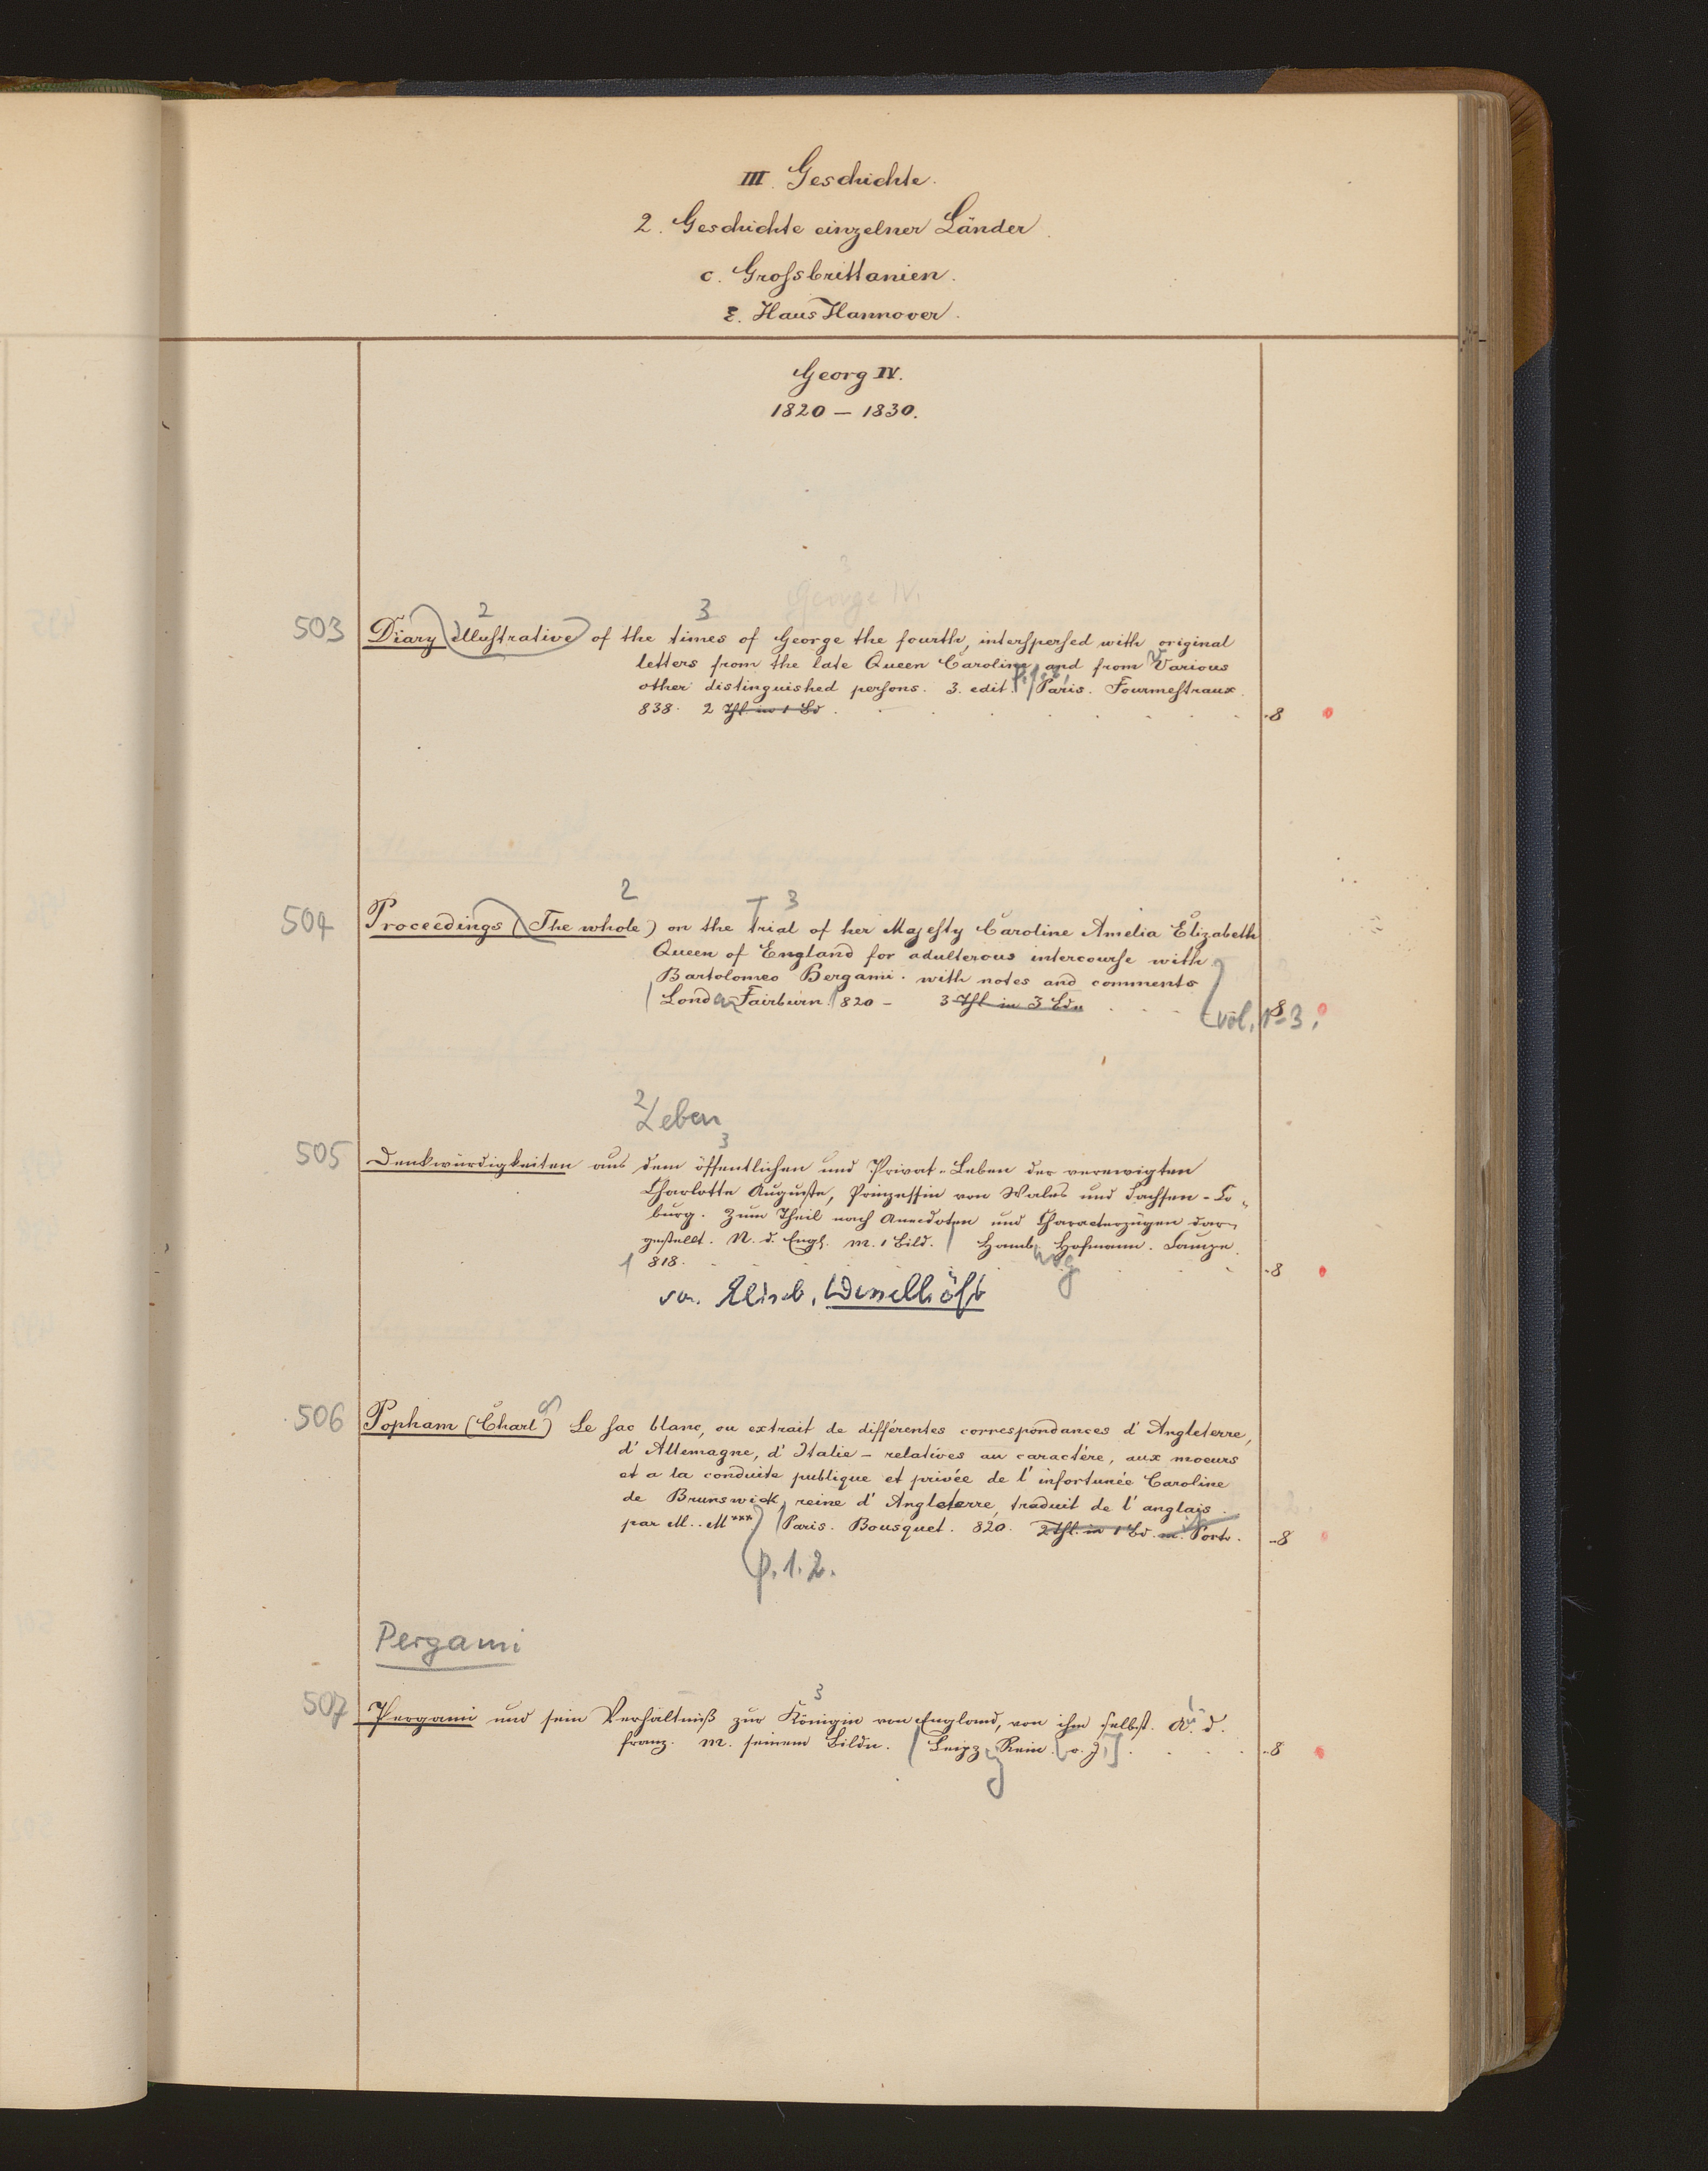 III. Geschichte.
2. Geschichte einzelner Länder.
c. Grossbrittanien.
ε. Haus Hannover.
Georg IV.
1820 – 1830.
George IV.
2 3
503 Diary (illustrative) of the times of George the fourth, interspersed with original
letters from the late Queen Caroline, and from Various
other distinguished persons. 3. edit. Paris. Fourmestraux.
838. 2 Thl in 1 Bd . -8
2 T 3
504 Proceedings (The whole) on the trial of her Majesty Caroline Amelia Elizabeth
Queen of England for adulterous intercourse with
Bartolomeo Bergami. with notes and comments
London Fairburn. 820 – 3 Thl in 3 Bdn -8
vol. 1-3.
2 Leben
3
505 Denkwürdigkeiten aus dem öffentlichen und Privat-Leben der verewigten
Charlotte Auguste, Prinzessin von Wales und Sachsen-Co-
burg. Zum Theil nach Anecdoten und Characterzügen dar-
gestellt. N. d. Engl. m. 1 Bild. Hambg Hofmann. Campe.
1818. -8
von Elisab.
506 Popham (Charl) Le sac blanc, ou extrait de différentes correspondances d'Angleterre,
d'Allemagne, d'Italie – relatives au caractére, aux moeurs
et a la conduite publique et privée de l'infortunée Caroline
de Brunswick, reine d'Angleterre, traduit de l'anglais.
par M..M*** Paris. Bousquet. 820. 2 Thl. in 1 Bd. m. Portr. -8
p. 1. 2.
Pergami
3
507 Pergami und sein Verhältniß zur Königin von England, von ihm selbst. A. d.
franz. m. seinem Bildn. Leipzg Rein. [o. J.] -8